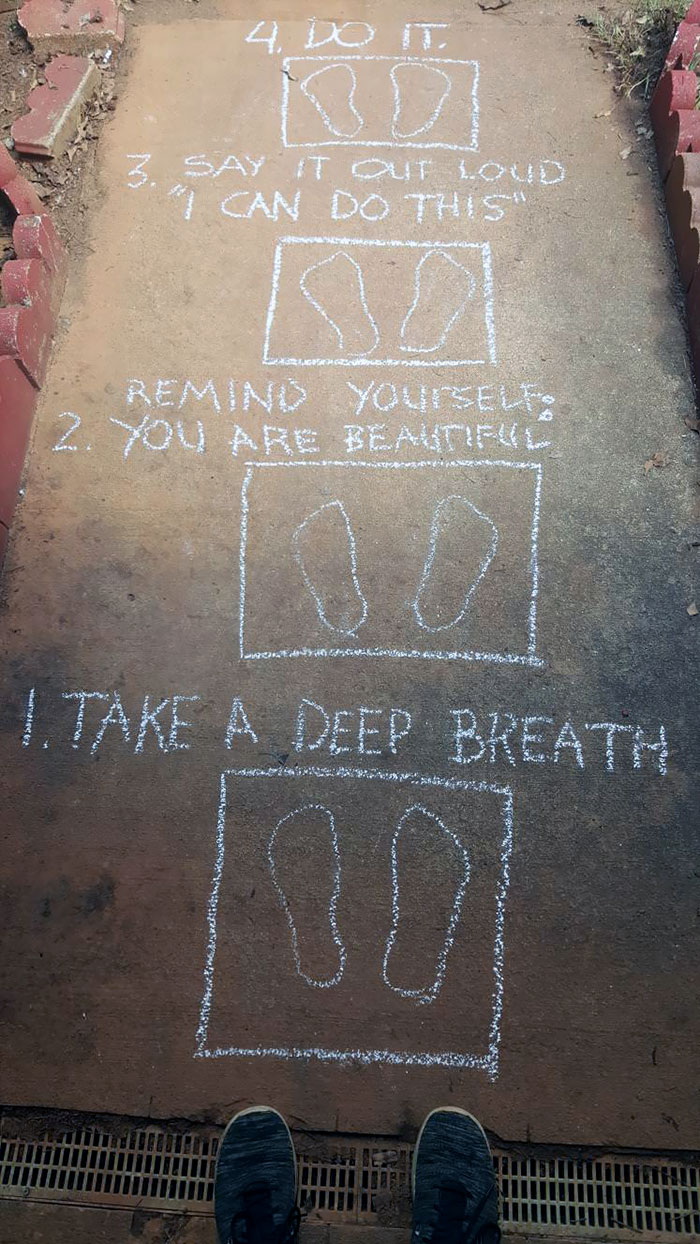 4. DO IT.
3. SAY IT OUT LOUD
"I CAN DO THIS"
REMIND YOURSELF:
2. YOU ARE BEAUTIFUL
1. TAKE A DEEP BREATH